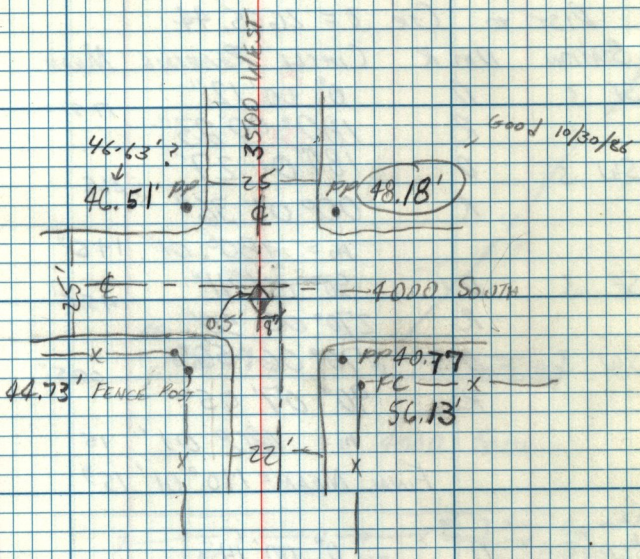 3500 WEST
Good 10/30/86
46.63'?
46.51' PP
25'
PP 48.18'
℄
25'
℄
4000 SOUTH
0.5'
8"
PP 40.77
44.73' FENCE POST
X
FC X
56.13'
22'
X
X